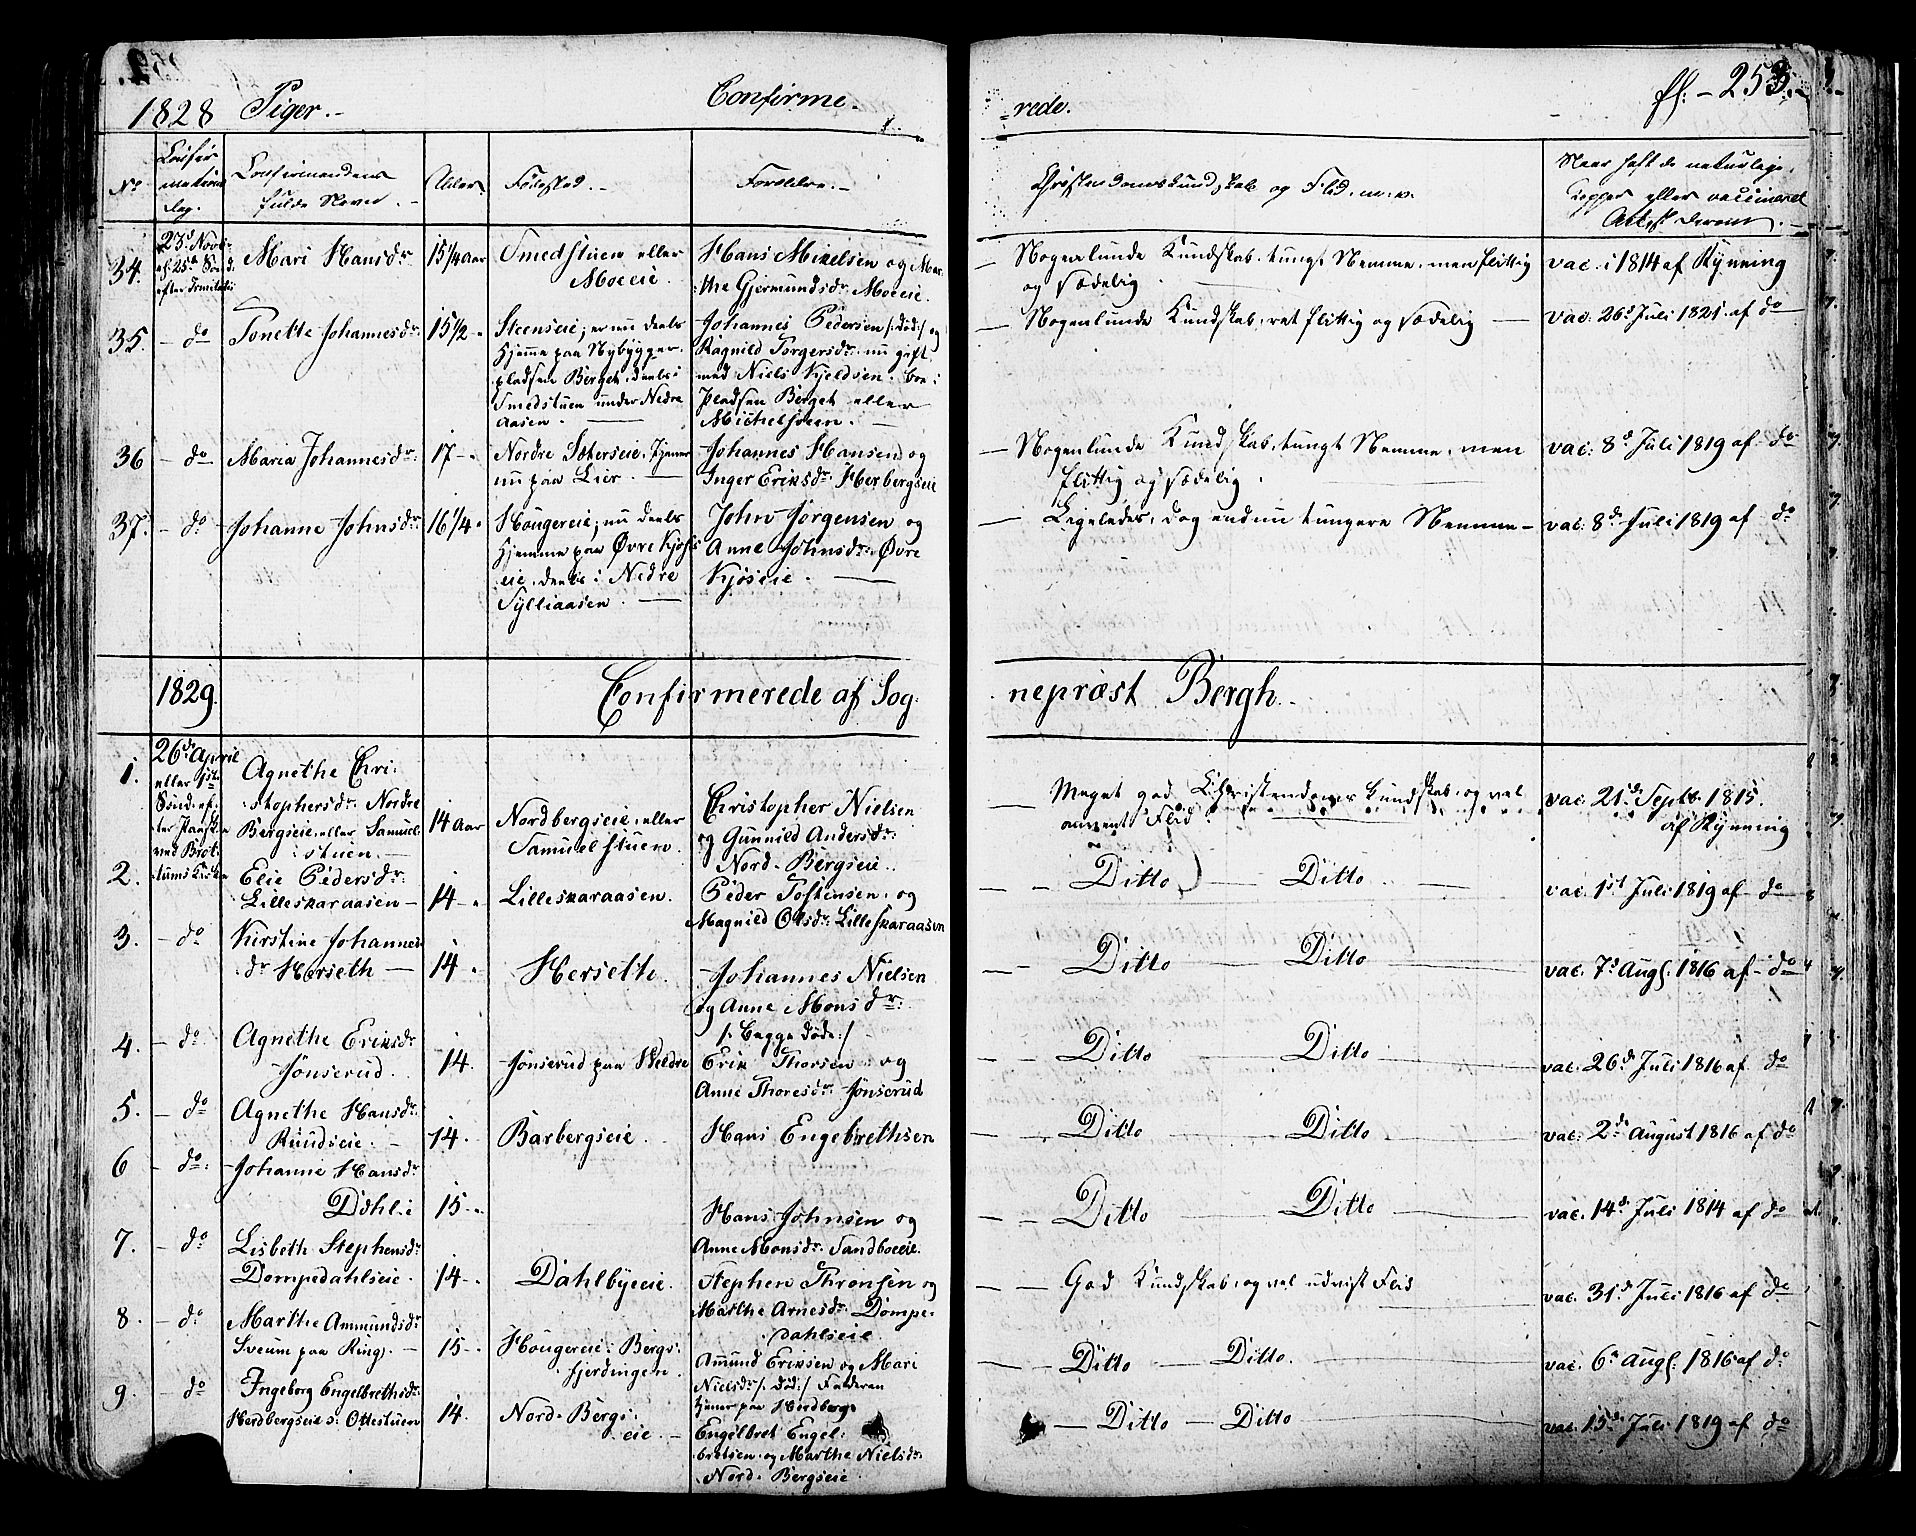 1828 Piger.- Confirme-
-rede. ff: - 253.-
No
Confir
mations
dag.
Confirmandens
fulde Navn.-
Alder.
Fødested.-
Forældre.-
Christendomskundskab og Flid. m. v.
Naar havt de naturlige
Kopper eller vaccineret
Attest derom.-
34.
23d Novb:
ef: 25de Sønd:
efter Trinitatis
Mari Hansdr
15 1/4 Aar
Smedstuen eller
Moeeie.
Hans Mikelsen og Mar-
the Gjermundsdr. Moeeie.
Nogenlunde Kundskab, tungt Nemme, men flittig
og sædelig.
vac. i 1814 af Rynning
35. - do Tonette Johannesdr 15 1/2 -
Steenseie; er nu deels
hjemme paa Nybygger-
pladsen Berget, deels i
Smedstuen under Nedre
Aasen.
Johannes Pedersen /: død :/ og
Ragnild Torgersdr. nu gift
med Niels Kjeldsen. boe i
Pladsen Berget eller
Michelsveen.
Nogenlunde Kundskab, ret flittig og sædelig
vac. 26d Juli 1821. af do
36 - do Maria Johannesdr. 17 -
Nordre Sæterseie, tjener
nu paa Lier.
Johannes Hansen og
Inger Eriksdr. Herbergseie
Nogenlunde Kundskab, tungt Nemme, men
flittig og sædelig.
vac: 8d Juli 1819 af do
37. - do Johanne Johnsdr. 16 1/4 -
Hougereie; nu deels
hjemme paa Øvre Kjøs
eie, deels i Nedre
Sylliaasen.
John Jörgensen og
Anne Johnsdr. Øvre
Kjøseie.
Ligeledes, dog endnu tungere Nemme-
vac: 8de Juli 1819 af do
1829. Confirmerede af Sog-
nepræst Bergh.-
1.
26de April
eller 1ste
Sönd. ef-
ter Paaske
ved Brøt-
tums Kirke
Agnethe Chri-
stophersdr. Nordre
Bergseie, eller Samuel-
stuen.
14 Aar
Nordbergseie, eller
Samuelstuen.
Christopher Nielsen
og Gunnild Andersdr.
Nord-Bergseie.
Meget god Christendoms Kundskab, og vel
anvendt Flid.
vac. 21de Septb. 1815.
af Rynning
2.
Elie Pedersdr:
Lilleskaraasen-
14 - Lilleskaraasen.
Peder Tostensen. og
Magnild Olsdr. Lilleskaraasen
Ditto Ditto
vac. 1st Juli 1819 af do
3. - do
Kirstine Johannes
dr Herseth
14 Herseth.
Johannes Nielsen
og Anne Monsdr.
/: begge døde :/
Ditto Ditto
vac. 7d Augs. 1816 af - do
4. - do
Agnethe Eriksdr
Jönserud.
14. Jönserud paa Veldre
Erik Thorsen og
Anne Thoresdr. Jönserud
Ditto Ditto
vac. 26de Juli 1816 af do
5. - do
Agnethe Hansdr.
Ruudseie.
14. Barbergseie.
Hans Engebrethsen
Ditto Ditto
vac. 2de August 1816 af do
6 - do:
Johanne Hansdr
Döhli
15 -
Hans Johnsen og
Anne Monsdr. Sandboeeie.
Ditto Ditto
vac. 14d Juli 1814 af do
7. - do
Lisbeth Stephensdr
Dompedahlseie.
14 - Dahlbyeeie.
Stephen Thronsen og
Marthe Arnesdr. Dompe-
dahlseie
God Kundskab, og vel udvist Flid
vac. 31d Juli 1816 af do
8. - do
Marthe Ammundsdr
Sveum paa Ring.
15 -
Hougereie i Bergs-
fjerdingen.
Amund Eriksen og Mari
Nielsdr /: død :/ Faderen
tjener paa Herdberg
Ditto Ditto.
vac. 6d Augs. 1816 af do
9. - do
Ingeborg Engelbrethsdr.
Herdbergseie s: Ottestuen
14.
Nord-Bergs-
eie.
Engelbret Engel-
bretsen og Marthe Nielsdr
Nord-Bergseie
Ditto Ditto
vac. 15de Juli 1819 af do